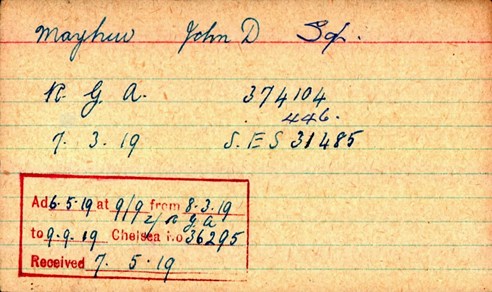 Mayhew John D Sgt.
R. G. A. 374104
446.
7. 3. 19 S. E S 31485
Ad 6.5.19 at 9/9 from 8.3.19
2/ R G A
to 9.9.19 Chelsea No 36295
Received 7. 5. 19